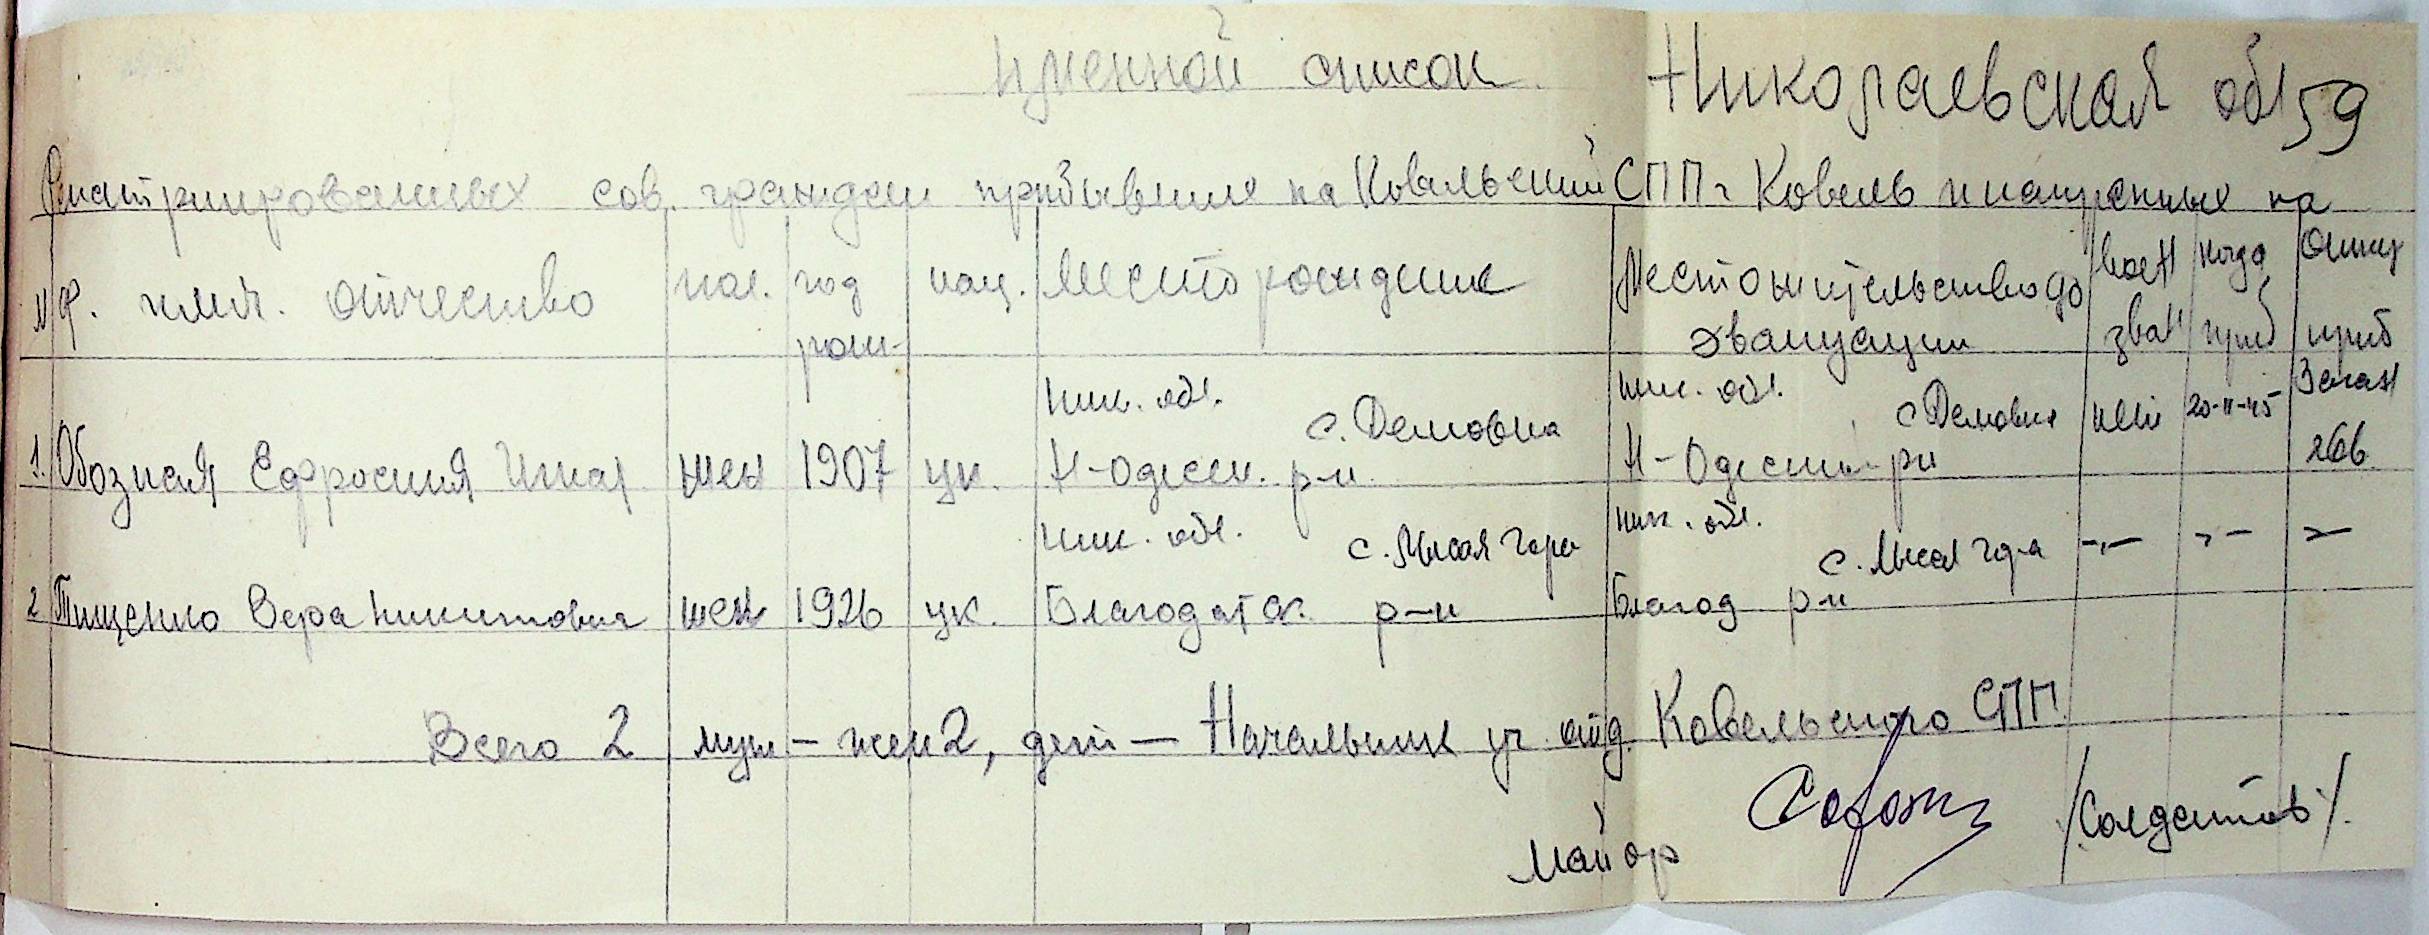 Именной список Николаевская обл 59
Репатриированных сов. граждан прибывшие на Ковельский СПП г Ковель направленные на
№ Ф. имя. отчество пол. год рож- нац. Место рождения Место жительства до эвакуации воен зван когда приб приб
1. Обозная Ефросиния Игнат жен 1907 ук. Ник. обл. Н-Одесск. р-н. с. Демовка Ник. обл. Н-Одесский р-н с Демовка нет 20-11-45 266
2 Тищенко Вера Никитовна жен 1926 ук. Ник. обл. Благодатск. р-н с. Лысая Гора Ник. обл. Благод р-н с. Лысая гора -"- -"- -"-
Всего 2 муж - жен 2, дет - Начальник уч. отд. Ковельского СПП
Майор /Солдатов/